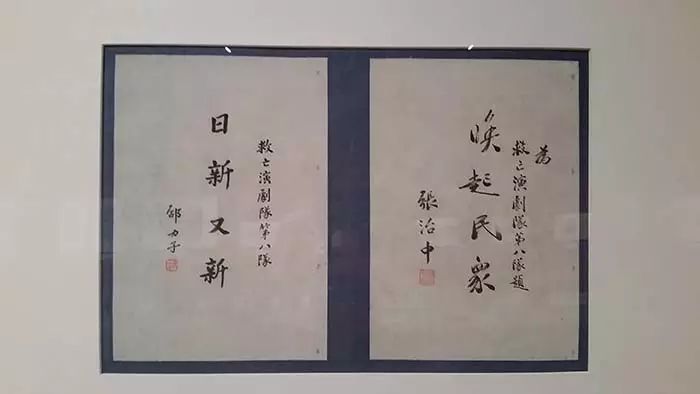 為
救亡演劇隊第八隊題
喚起民眾
張治中
救亡演劇隊第八隊
日新又新
邵力子